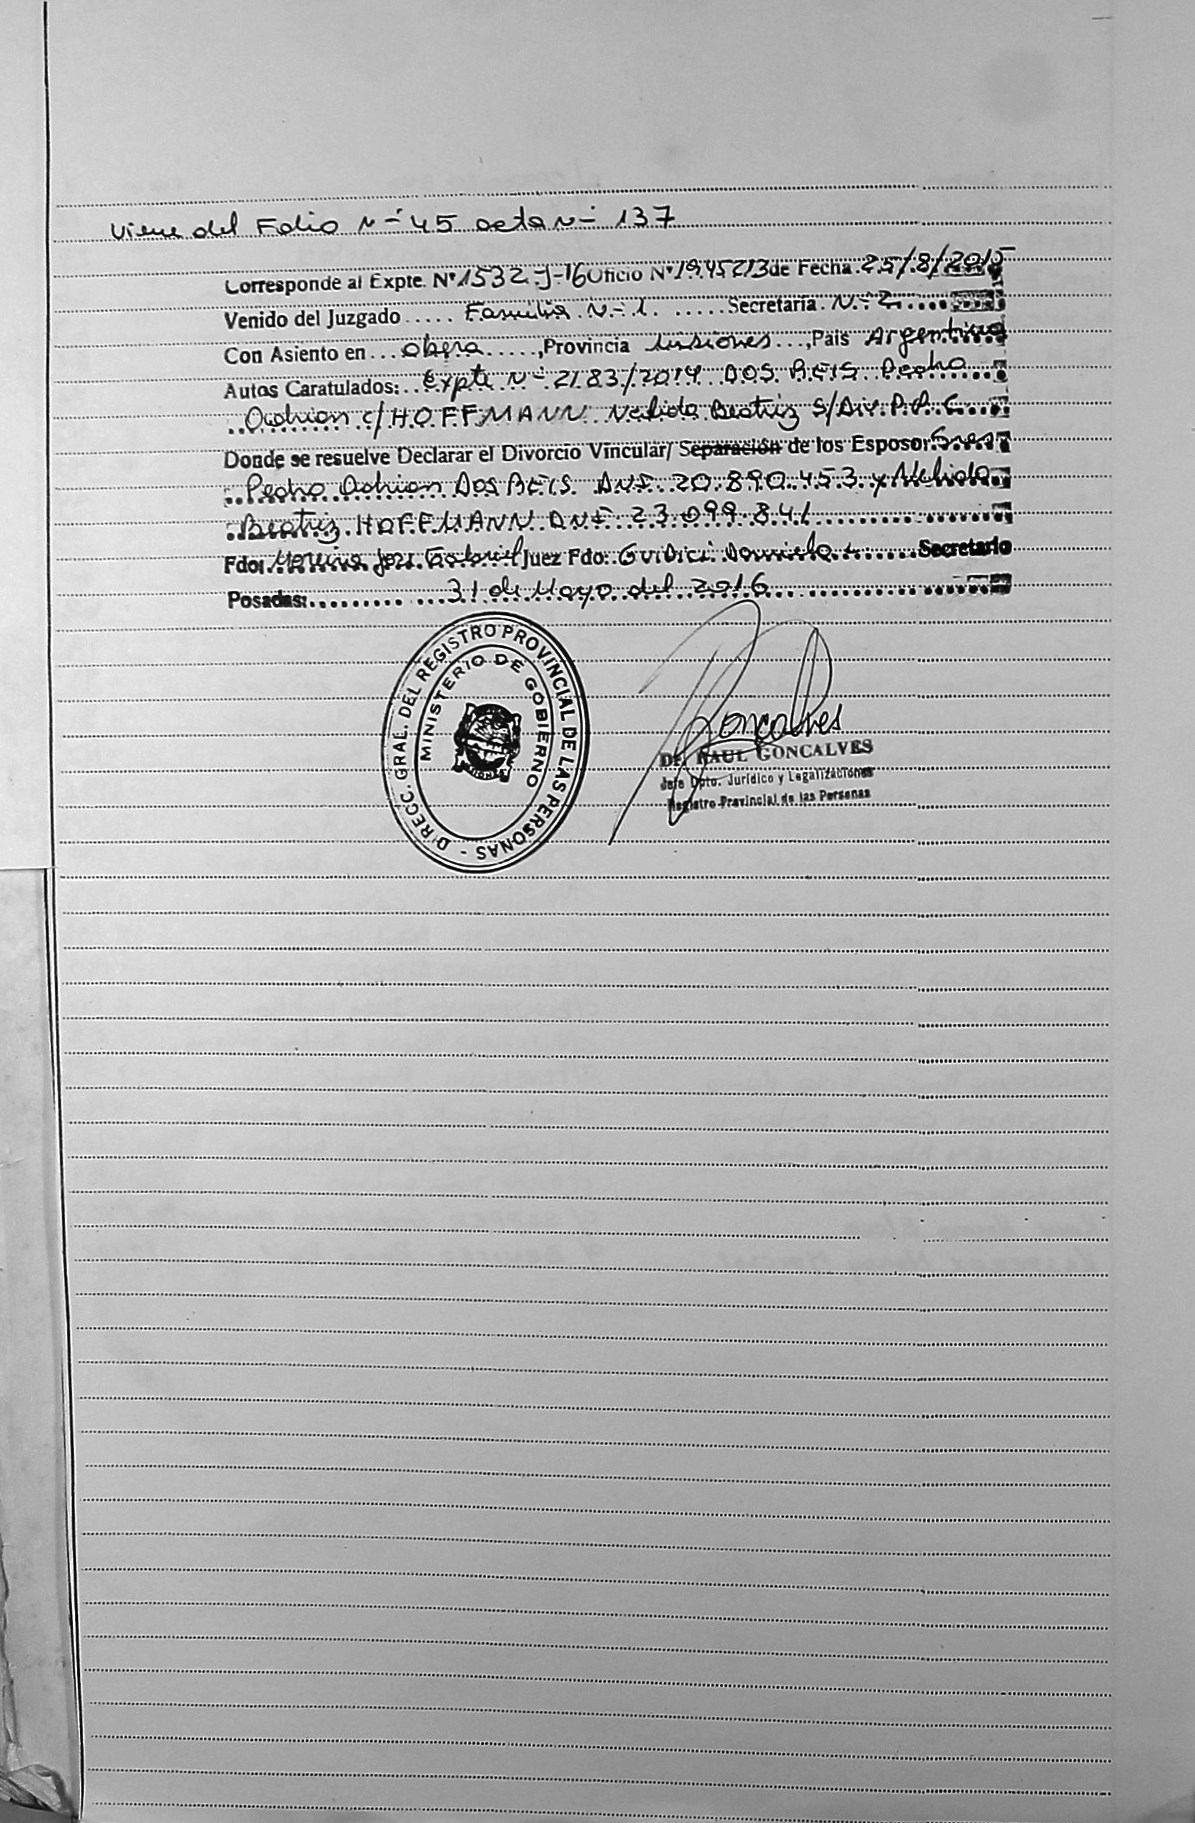 Viene del Folio Nº 45 acta Nº 137
Corresponde al Expte. Nº 1532-J-16 Oficio Nº 1945213 de Fecha 25/8/2015
Venido del Juzgado ..... Familia Nº 1. ..... Secretaria Nº 2.....
Con Asiento en ... Obera ....., Provincia Misiones ..., Pais Argentina
Autos Caratulados: Expte Nº 2183/2014 DOS REIS Pedro
Adrian c/ HOFFMANN Nelida Beatriz S/ Div. P. P. C.
Donde se resuelve Declarar el Divorcio Vincular/ Separación de los Esposos: Sres.
Pedro Adrian DOS REIS DNI. 20.890.453 y Nelida
Beatriz HOFFMANN DNI 23.099.841
Fdo: Moreira Jose Gabriel Juez Fdo: Guidici Daniela ....... Secretario
Posadas: ......... 31 de Mayo del 2016
DIRECC. GRAL. DEL REGISTRO PROVINCIAL DE LAS PERSONAS -
MINISTERIO DE GOBIERNO
MISIONES
Goncalves
Dr. RAUL GONCALVES
Jefe Dpto. Jurídico y Legalizaciones
Registro Provincial de las Personas